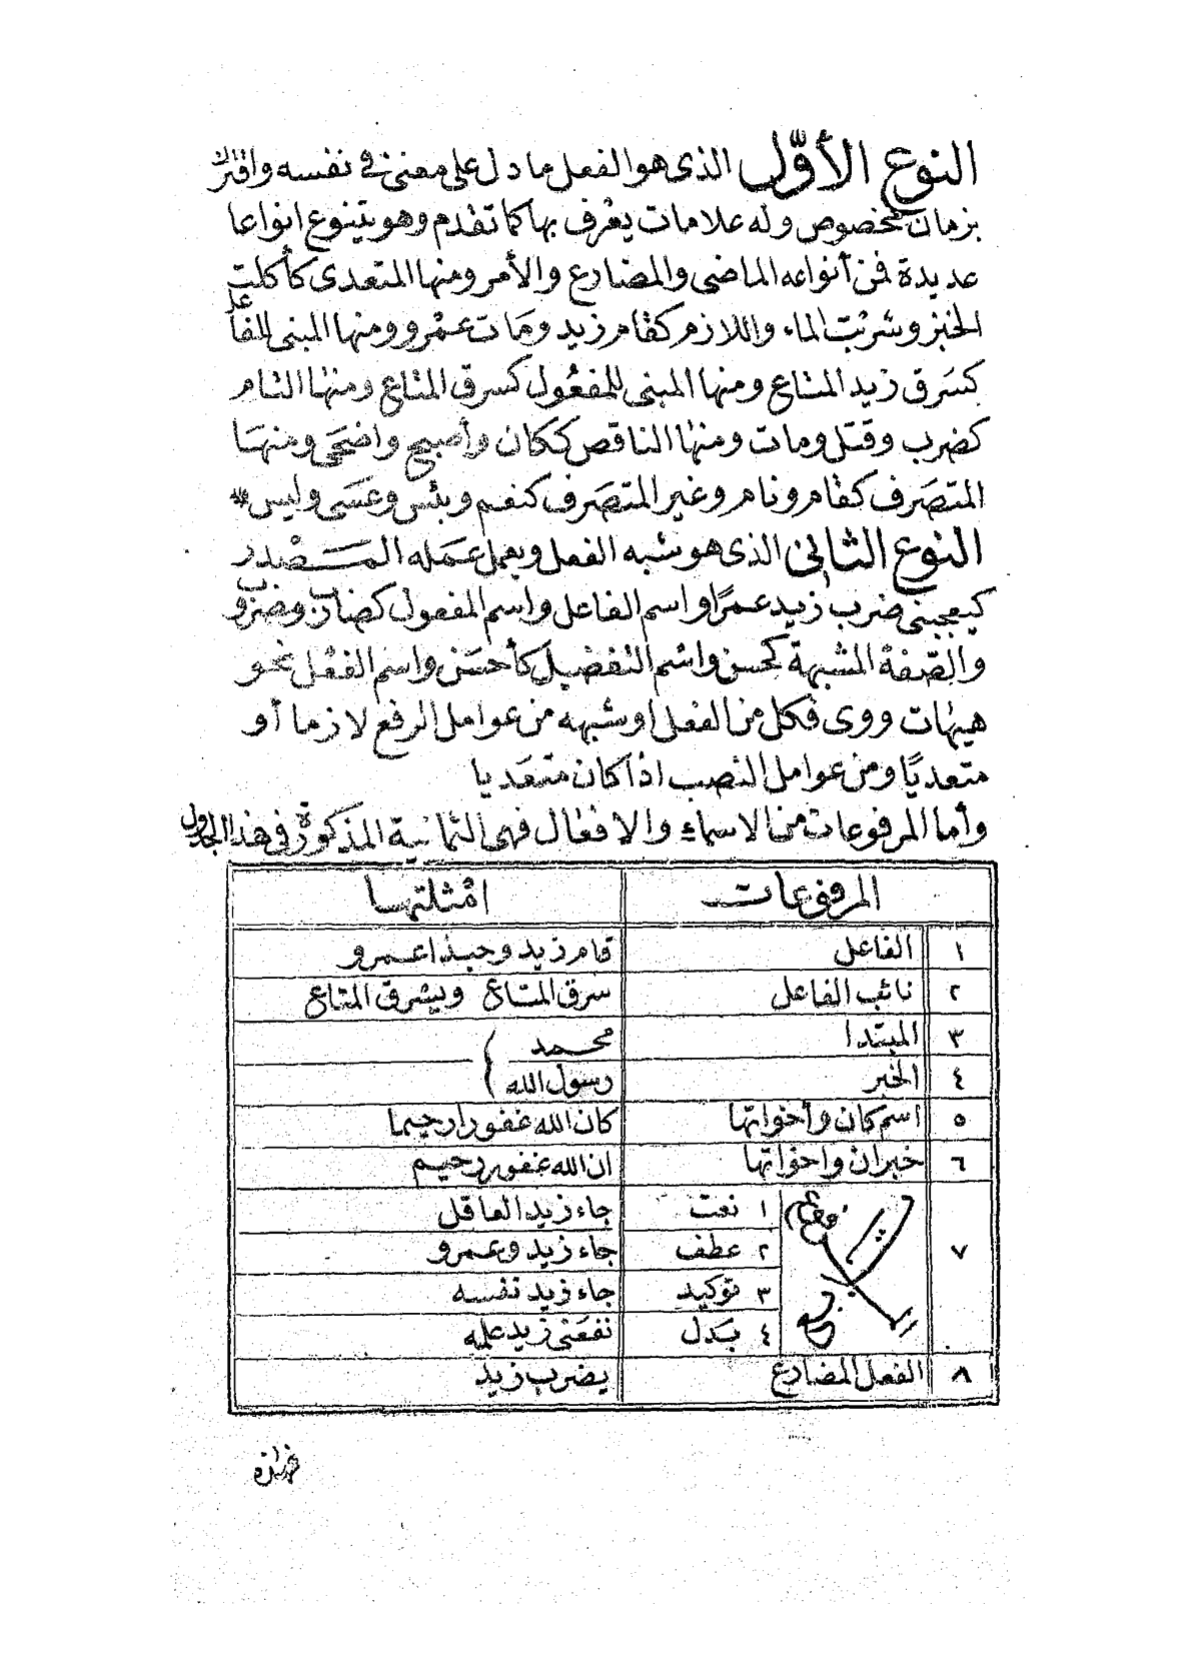 النوع الأوّل الذى هو الفعل ما دل على معنى فى نفسه واقترن
بزمان مخصوص وله علامات يعْرف بها كما تقدم وهو يتنوع انواعا
عديدة فمن أنواعه الماضى والمضارع والأمر ومنها المتعدى كأكلت
الخبز وشربْت الماء واللازم كقام زيد ومَات عمْرو ومنها المبنى للفاعل
كسَرق زيد المتاع ومنها المبنى للمفعُول كسرق المتاع ومنها التام
كضرب وقتل ومات ومنها الناقص ككان وأصبح واضحَى ومنهَا
المتصَرف كقام ونام وغير المتصَرف كنعم وبئس وعَسَى وليس
النوع الثانى الذى هو شبه الفعل ويعمل عمَله المَصْدر
كيعجبنى ضرب زيد عمرًا واسم الفاعل واسم المفعول كضارب ومضروب
والصّفة المشبهة كحسن واسْم التفضيل كأحسَن واسم الفعْل نحو
هيهات ووى فكل من الفعل اوشبهه من عوامل الرفع لازما أو
متعديًا ومن عوامل النصب اذا كان متعَديا
وأما المرفوعات من الاسماء والافعال فهى الثمانية المذكورة فى هذا الجدول
المرفوعات امْثلتها
١ الفاعل قام زيد وحبذا عمرو
٢ نائب الفاعل سرق المتاع ويسْرق المتاع
٣ المبتدا محمد
٤ الخبر رسول الله
٥ اسم كان وأخواتها كان الله غفورا رحيما
٦ خبر ان واخواتها ان الله غفور رحيم
١ نعت جاء زيد العاقل
٧ ٢ عطف جاء زيد وعمرو
٣ توكيد جاء زيد نفسه
٤ بَدل نفعَنى زيد علمه
٨ الفعل المضارع يضرب زيد